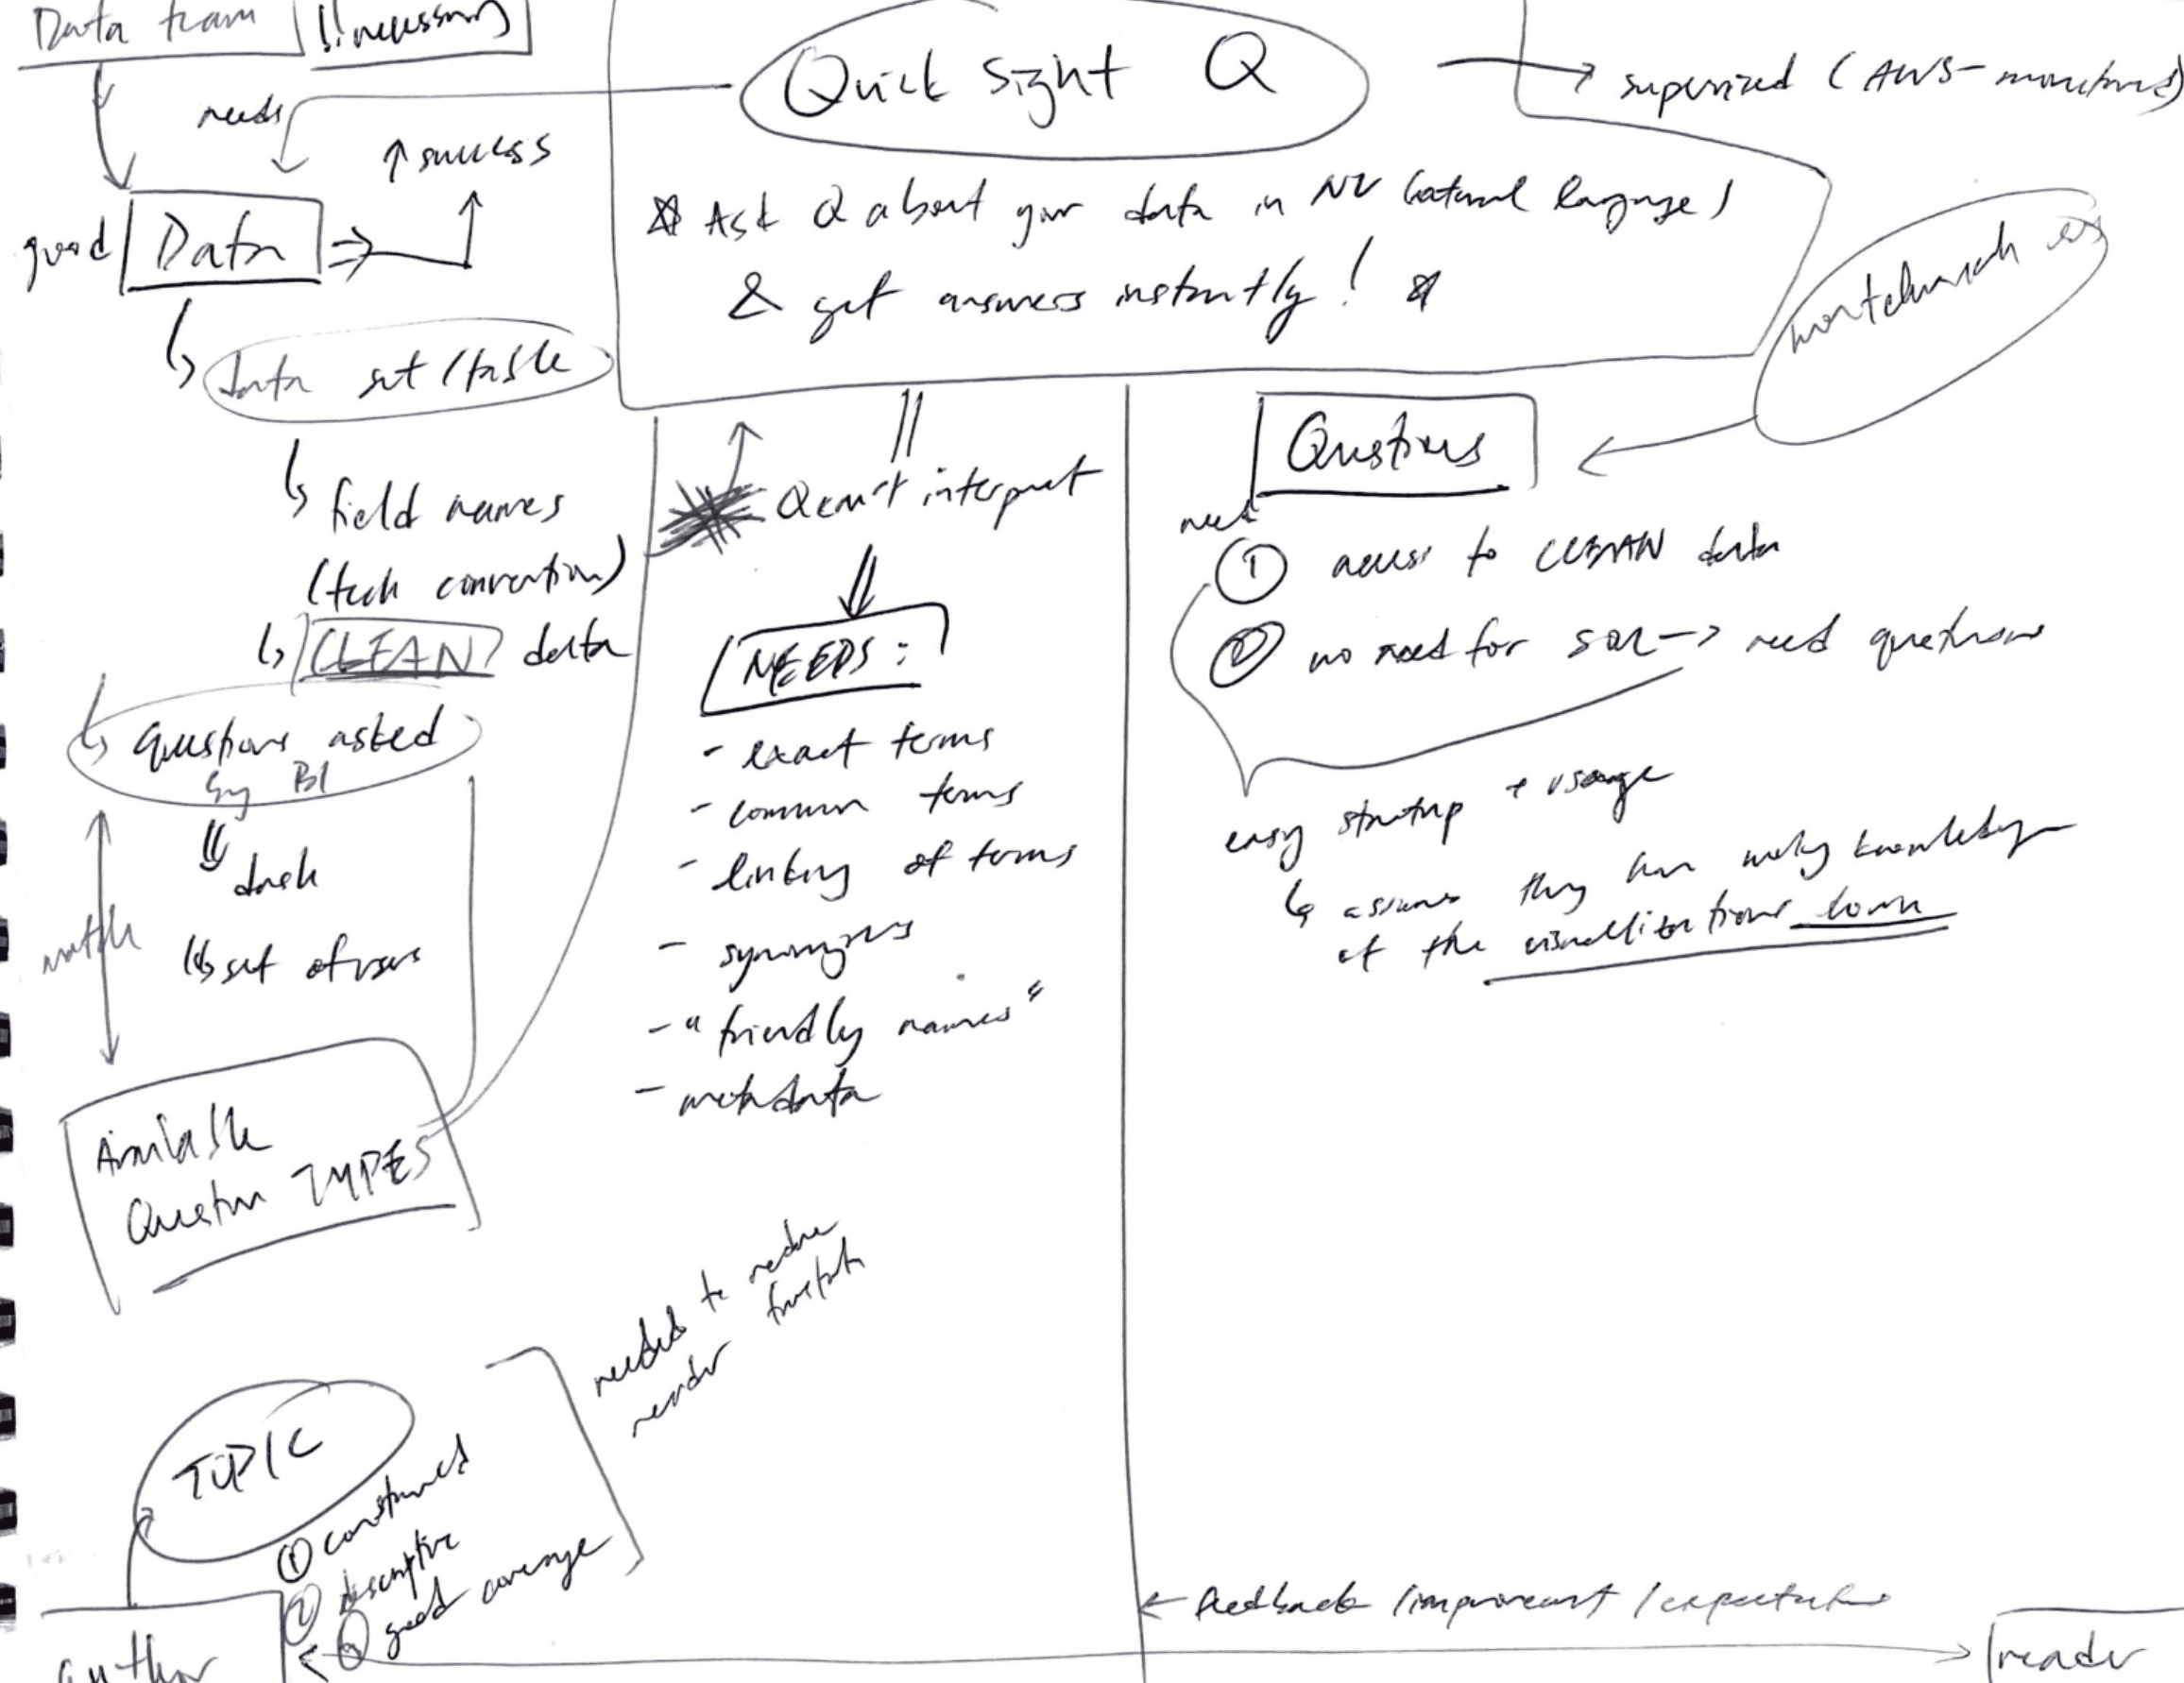 Data team
!! necessary
QuickSight Q
→ supervised (AWS-
needs
↑ success
☆ Ask Q about your data in NL (natural language)
& get answers instantly! ☆
good
Data
Data set/table
field names
(tech convention)
CLEAN data
questions asked
by BI
dash
set of users
match
Available
Question TYPES
Q can't interpret
NEEDS:
- exact terms
- common terms
- linking of terms
- synonyms
- "friendly names"
- metadata
Questions
need
① access to CLEAN data
② no need for SQL -> need questions
easy startup + usage
assumes they have working knowledge
of the visualizations
TOPIC
① constrained
② descriptive
③ good coverage
needed to reduce
reader frustratn
← feedback /improvement /expectations
author
reader